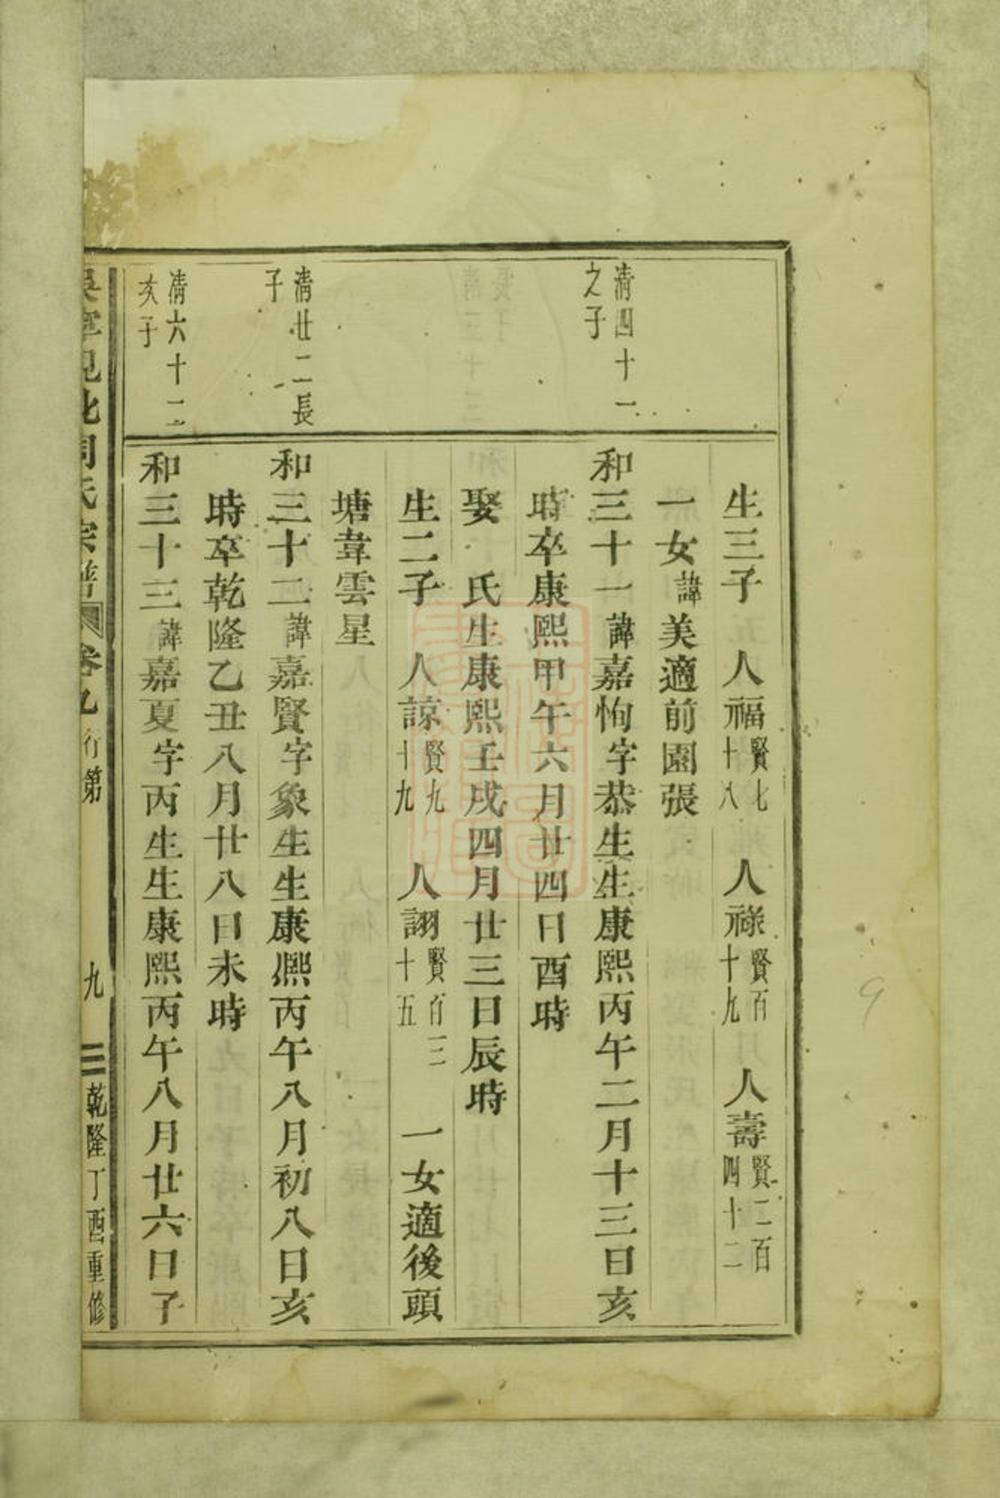 生三子　人福賢七十八　人祿賢百十九　人壽賢二百四十二
一女諱美適前園張
清四十一之子
和三十一諱嘉恂字恭生生康熙丙午二月十三日亥
時卒康熙甲午六月廿四日酉時
娶　氏生康熙壬戌四月廿三日辰時
生二子　人諒賢九十九　人詡賢百三十五　一女適後頭
塘韋雲星
清廿二長子
和三十二諱嘉賢字象生生康熙丙午八月初八日亥
時卒乾隆乙丑八月廿八日未時
清六十二亥子
和三十三諱嘉夏字丙生生康熙丙午八月廿六日子
周氏宗譜　卷九　行第　九　乾隆丁酉重修